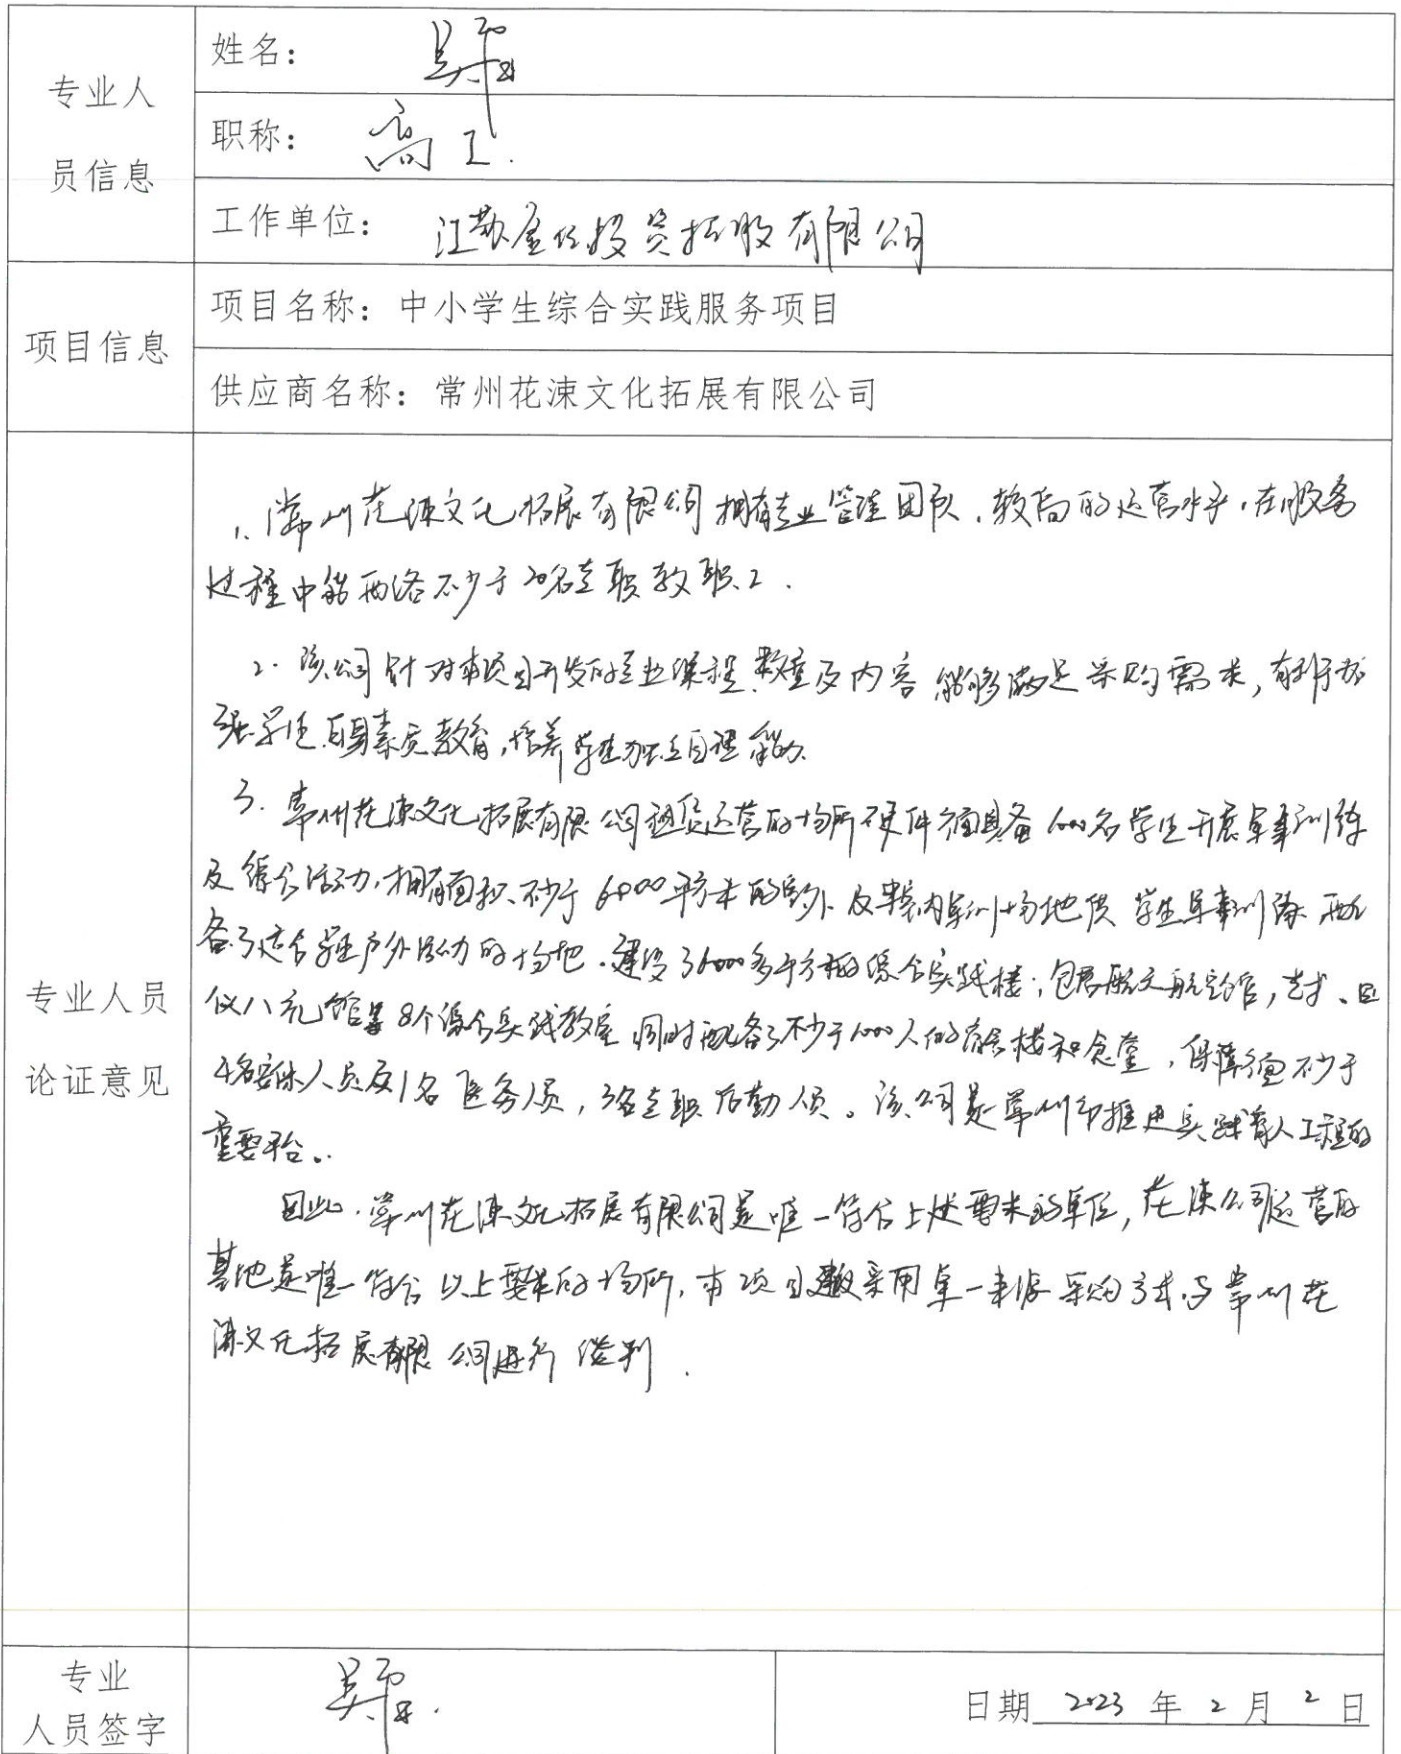 专业人员信息
姓名：
职称： 高工.
工作单位： 江苏金伦投资控股有限公司
项目信息
项目名称：中小学生综合实践服务项目
供应商名称：常州花涑文化拓展有限公司
专业人员论证意见
1、常州花涑文化拓展有限公司拥有专业管理团队、较高的运营水平，在服务
过程中能配备不少于20名专职教职工.
2. 该公司针对本项目开发的专业课程、数量及内容能够满足采购需求，有利于加
强学生自身素质教育，培养学生独立自理能力.
3. 常州花涑文化拓展有限公司租赁运营的场所硬件方面具备1000名学生开展军事训练
及综合活动，拥有面积不少于6000平方米的室外及室内军训场地供学生军事训练 配
备了适合学生户外活动的场地.建设了6000多平方的综合实践楼；包含航天航空馆，
仪八元馆等8个综合实践教室 同时配备了不少于1000人的宿舍楼和食堂，保障方面不少于
4名安保人员及1名医务人员，3名专职后勤人员。该公司是常州市推进实践育人工程的
重要平台。
因此，常州花涑文化拓展有限公司是唯一符合上述要求的单位，花涑公司运营的
基地是唯一符合以上要求的场所，本项目建议采用单一来源采购方式与常州花
涑文化拓展有限公司进行谈判.
专业
人员签字
日期 2023 年 2 月 2 日